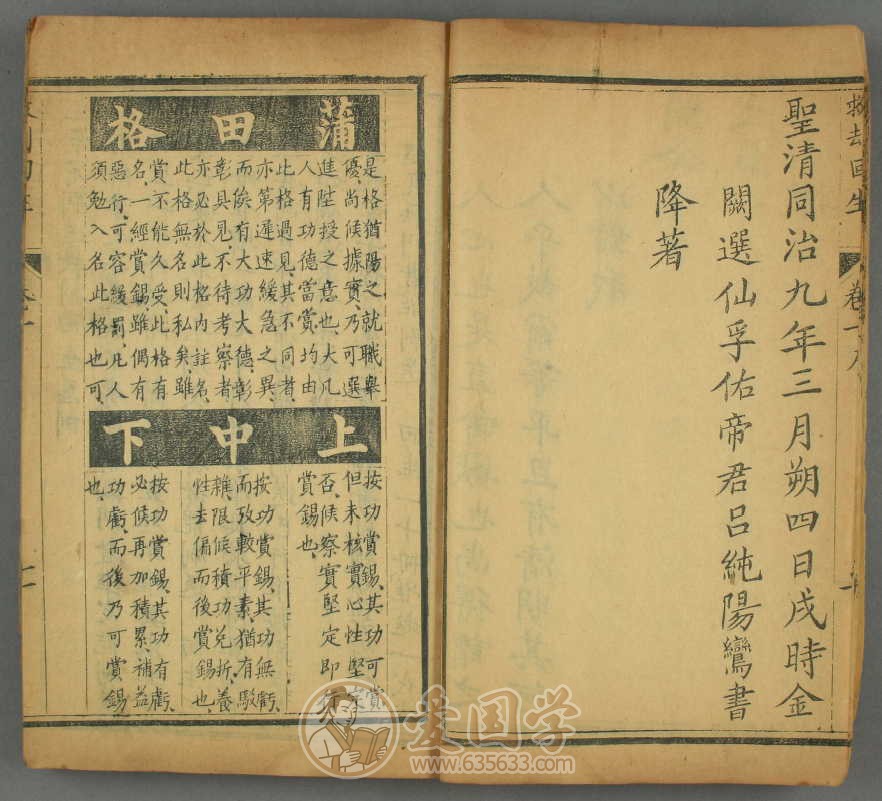 救劫回生
卷一
聖清同治九年三月朔四日戌時金
闕選仙孚佑帝君呂純陽鸞書
降著
蒲田格
是格猶陽之就職舉
優尚候據實乃可選
進陞授之意也大凡
人有功德當賞均由
此格過見其不同者
亦第遲速緩急之異
而俟有大功大德彰
彰具見不待考察者
亦必於此格內註名
此格無名則私矣雖
賞不能久受此格有
名一經賞錫雖偶有
惡行可容緩罰凡人
須勉入名此格也可
上中下
按功賞錫其功可賞
但未核實心性堅定
否候察實堅定即行
賞錫也
按功賞錫其功無虧
而攷較平素猶有駁
雜限候積功兌折養
性去偏而後賞錫也
按功賞錫其功有虧
必候再加積累補益
功虧而後乃可賞錫
也
爱国学
www.635633.com